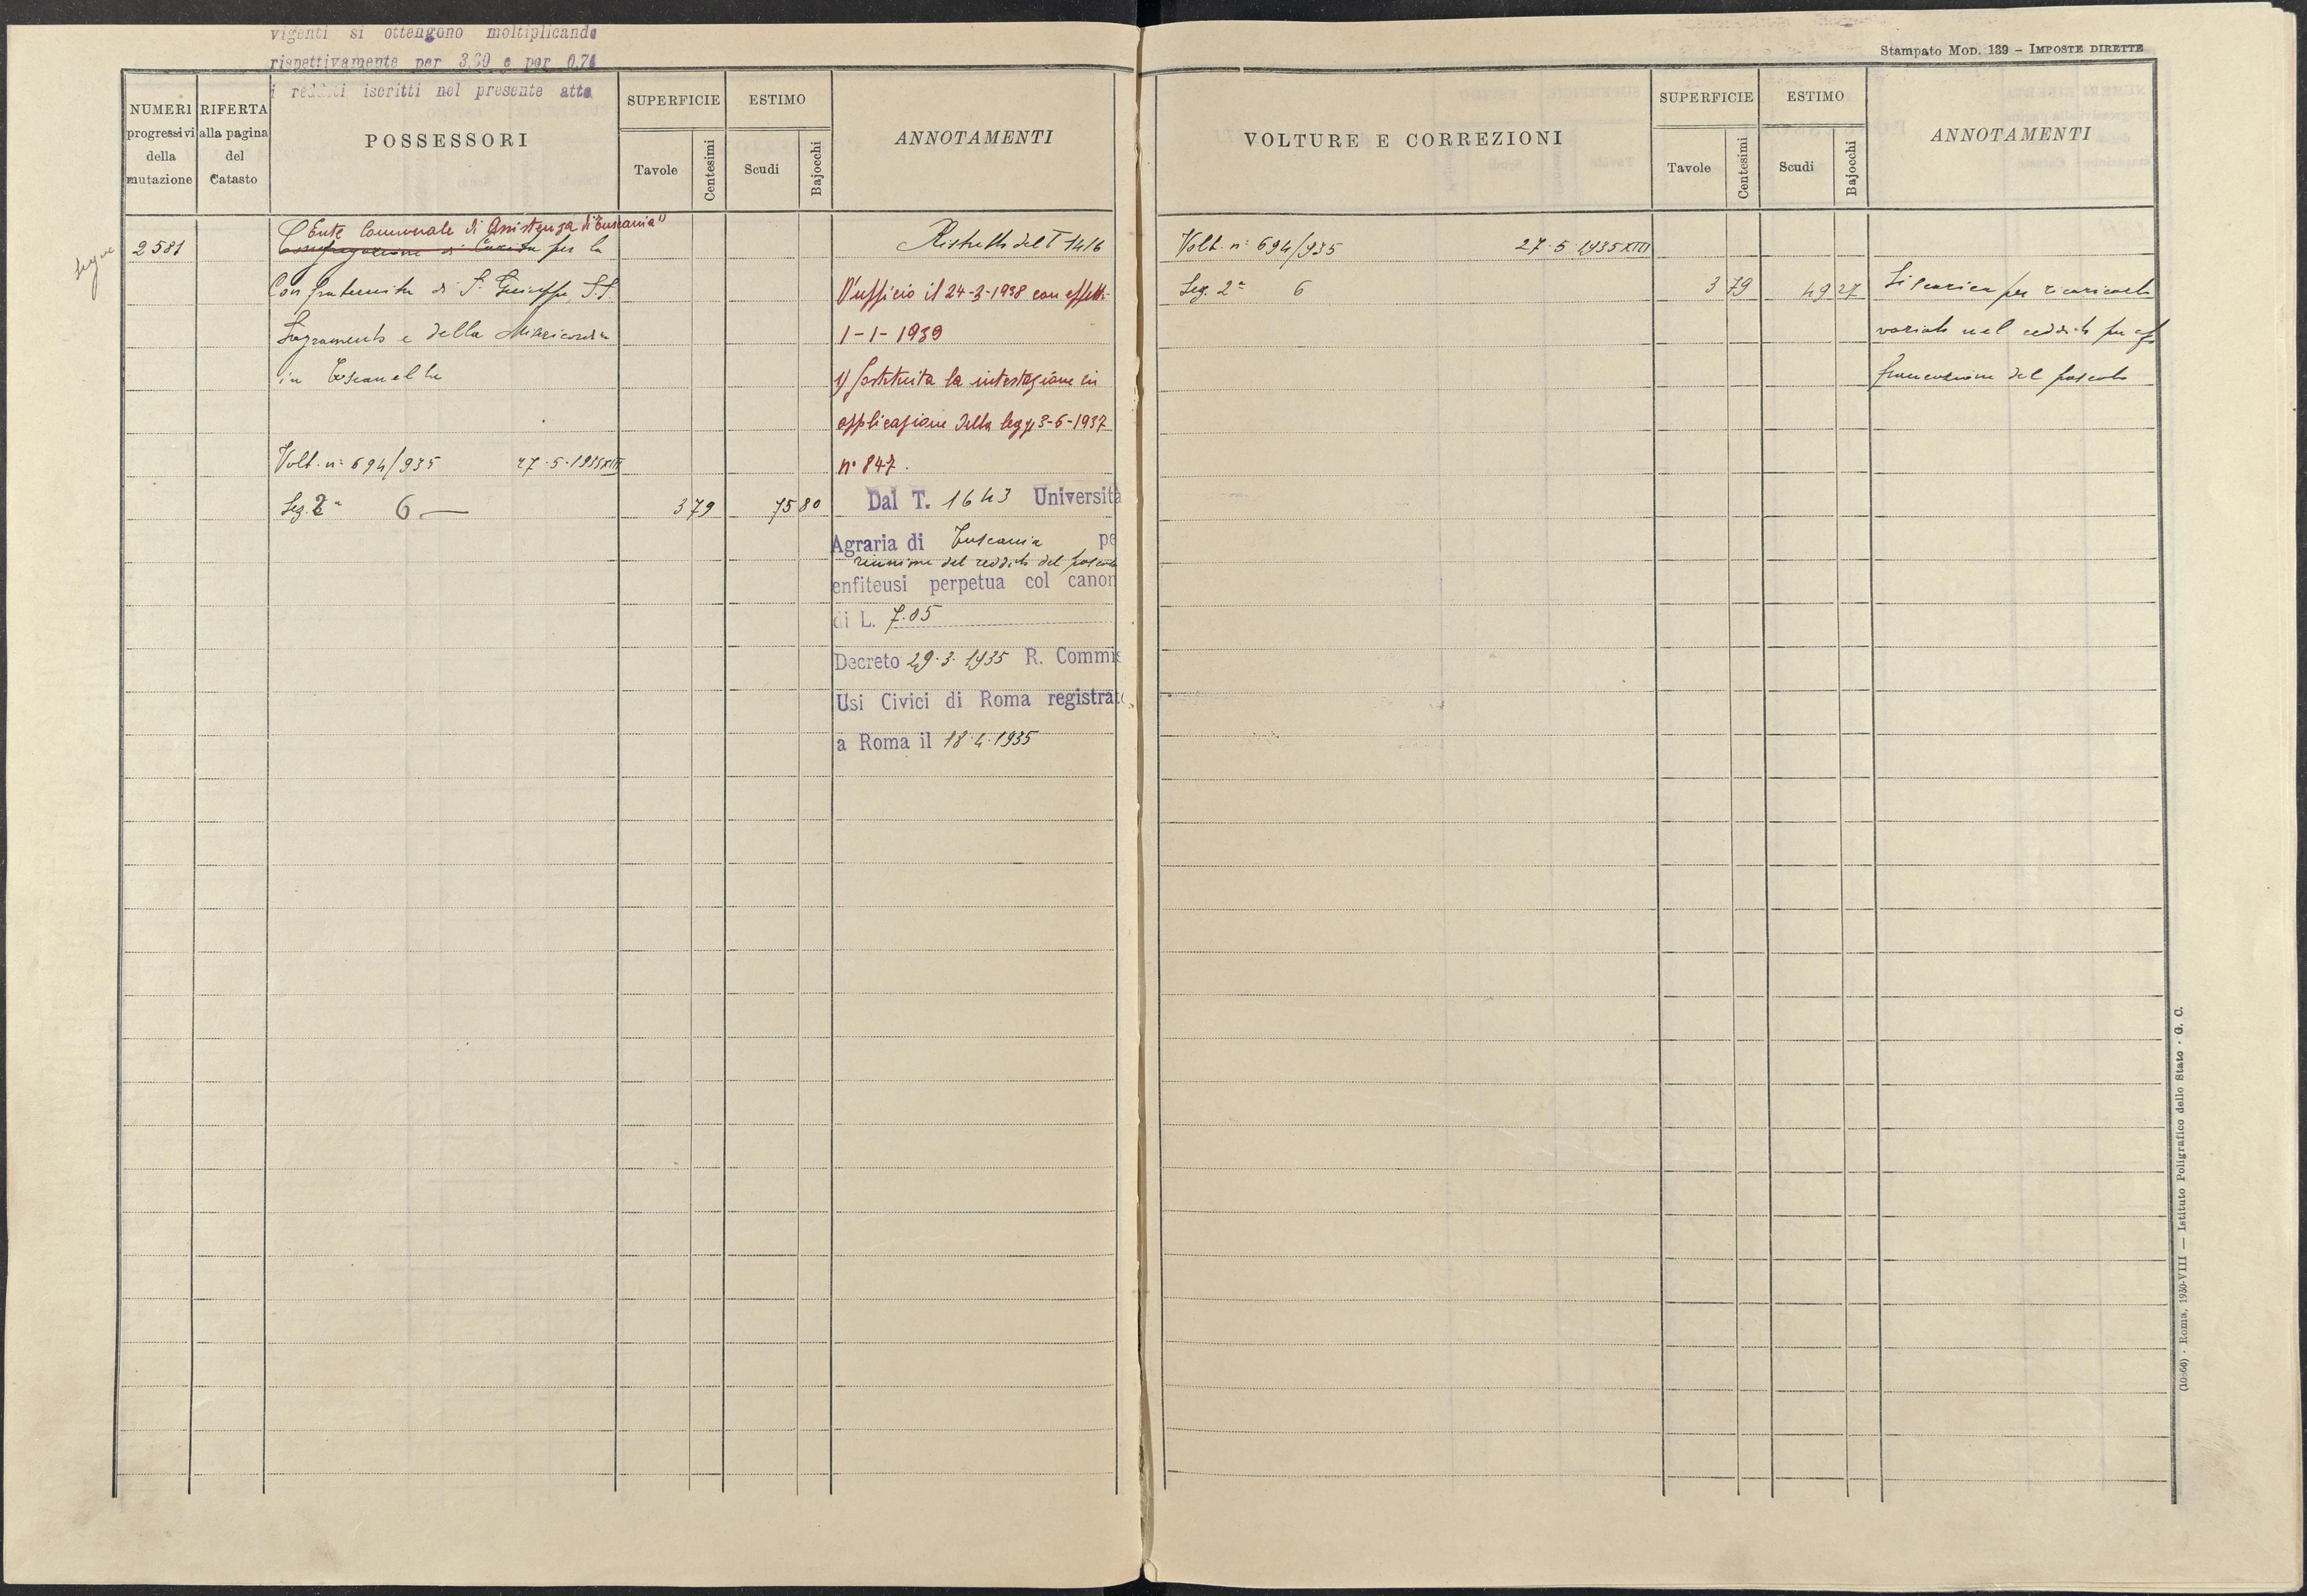 vigenti si ottengono moltiplicando
rispettivamente per 3.60 e per 0.71
i redditi iscritti nel presente atto
NUMERI
progressivi
della
mutazione
RIFERTA
alla pagina
del
Catasto
POSSESSORI
SUPERFICIE
Tavole
Centesimi
ESTIMO
Scudi
Bajocchi
ANNOTAMENTI
segue
2581
Ente Comunale di Assistenza di Tuscania 1)
Congregazione di Carità per la
Confraternita di S. Giuseppe SS.
Sagramento e della Misericordia
in Toscanella
Volt. n: 694/935 27.5.1935 XIII
Sez. 2a 6 — 3 79 75 80
Ristretto del T 1416
D'ufficio il 24-3-1938 con effetti
1-1-1939
1) Sostituita la intestazione in
applicazione della legge 3-6-1937
n° 847.
Dal T. 1643 Università
Agraria di Tuscania pe
riunione del reddito del pascolo
enfiteusi perpetua col canon
di L. 7.05
Decreto 29.3.1935 R. Commis
Usi Civici di Roma registrato
a Roma il 18.4.1935
Stampato Mod. 139 – Imposte dirette
VOLTURE E CORREZIONI
SUPERFICIE
Tavole
Centesimi
ESTIMO
Scudi
Bajocchi
ANNOTAMENTI
Volt. n: 694/935 27.5.1935 XIII
Sez. 2a 6 3 79 49 27 Si scarica per ricaricarla
variata nel reddito per af
francazione del pascolo
(10866) - Roma, 1930-VIII — Istituto Poligrafico dello Stato - G. C.